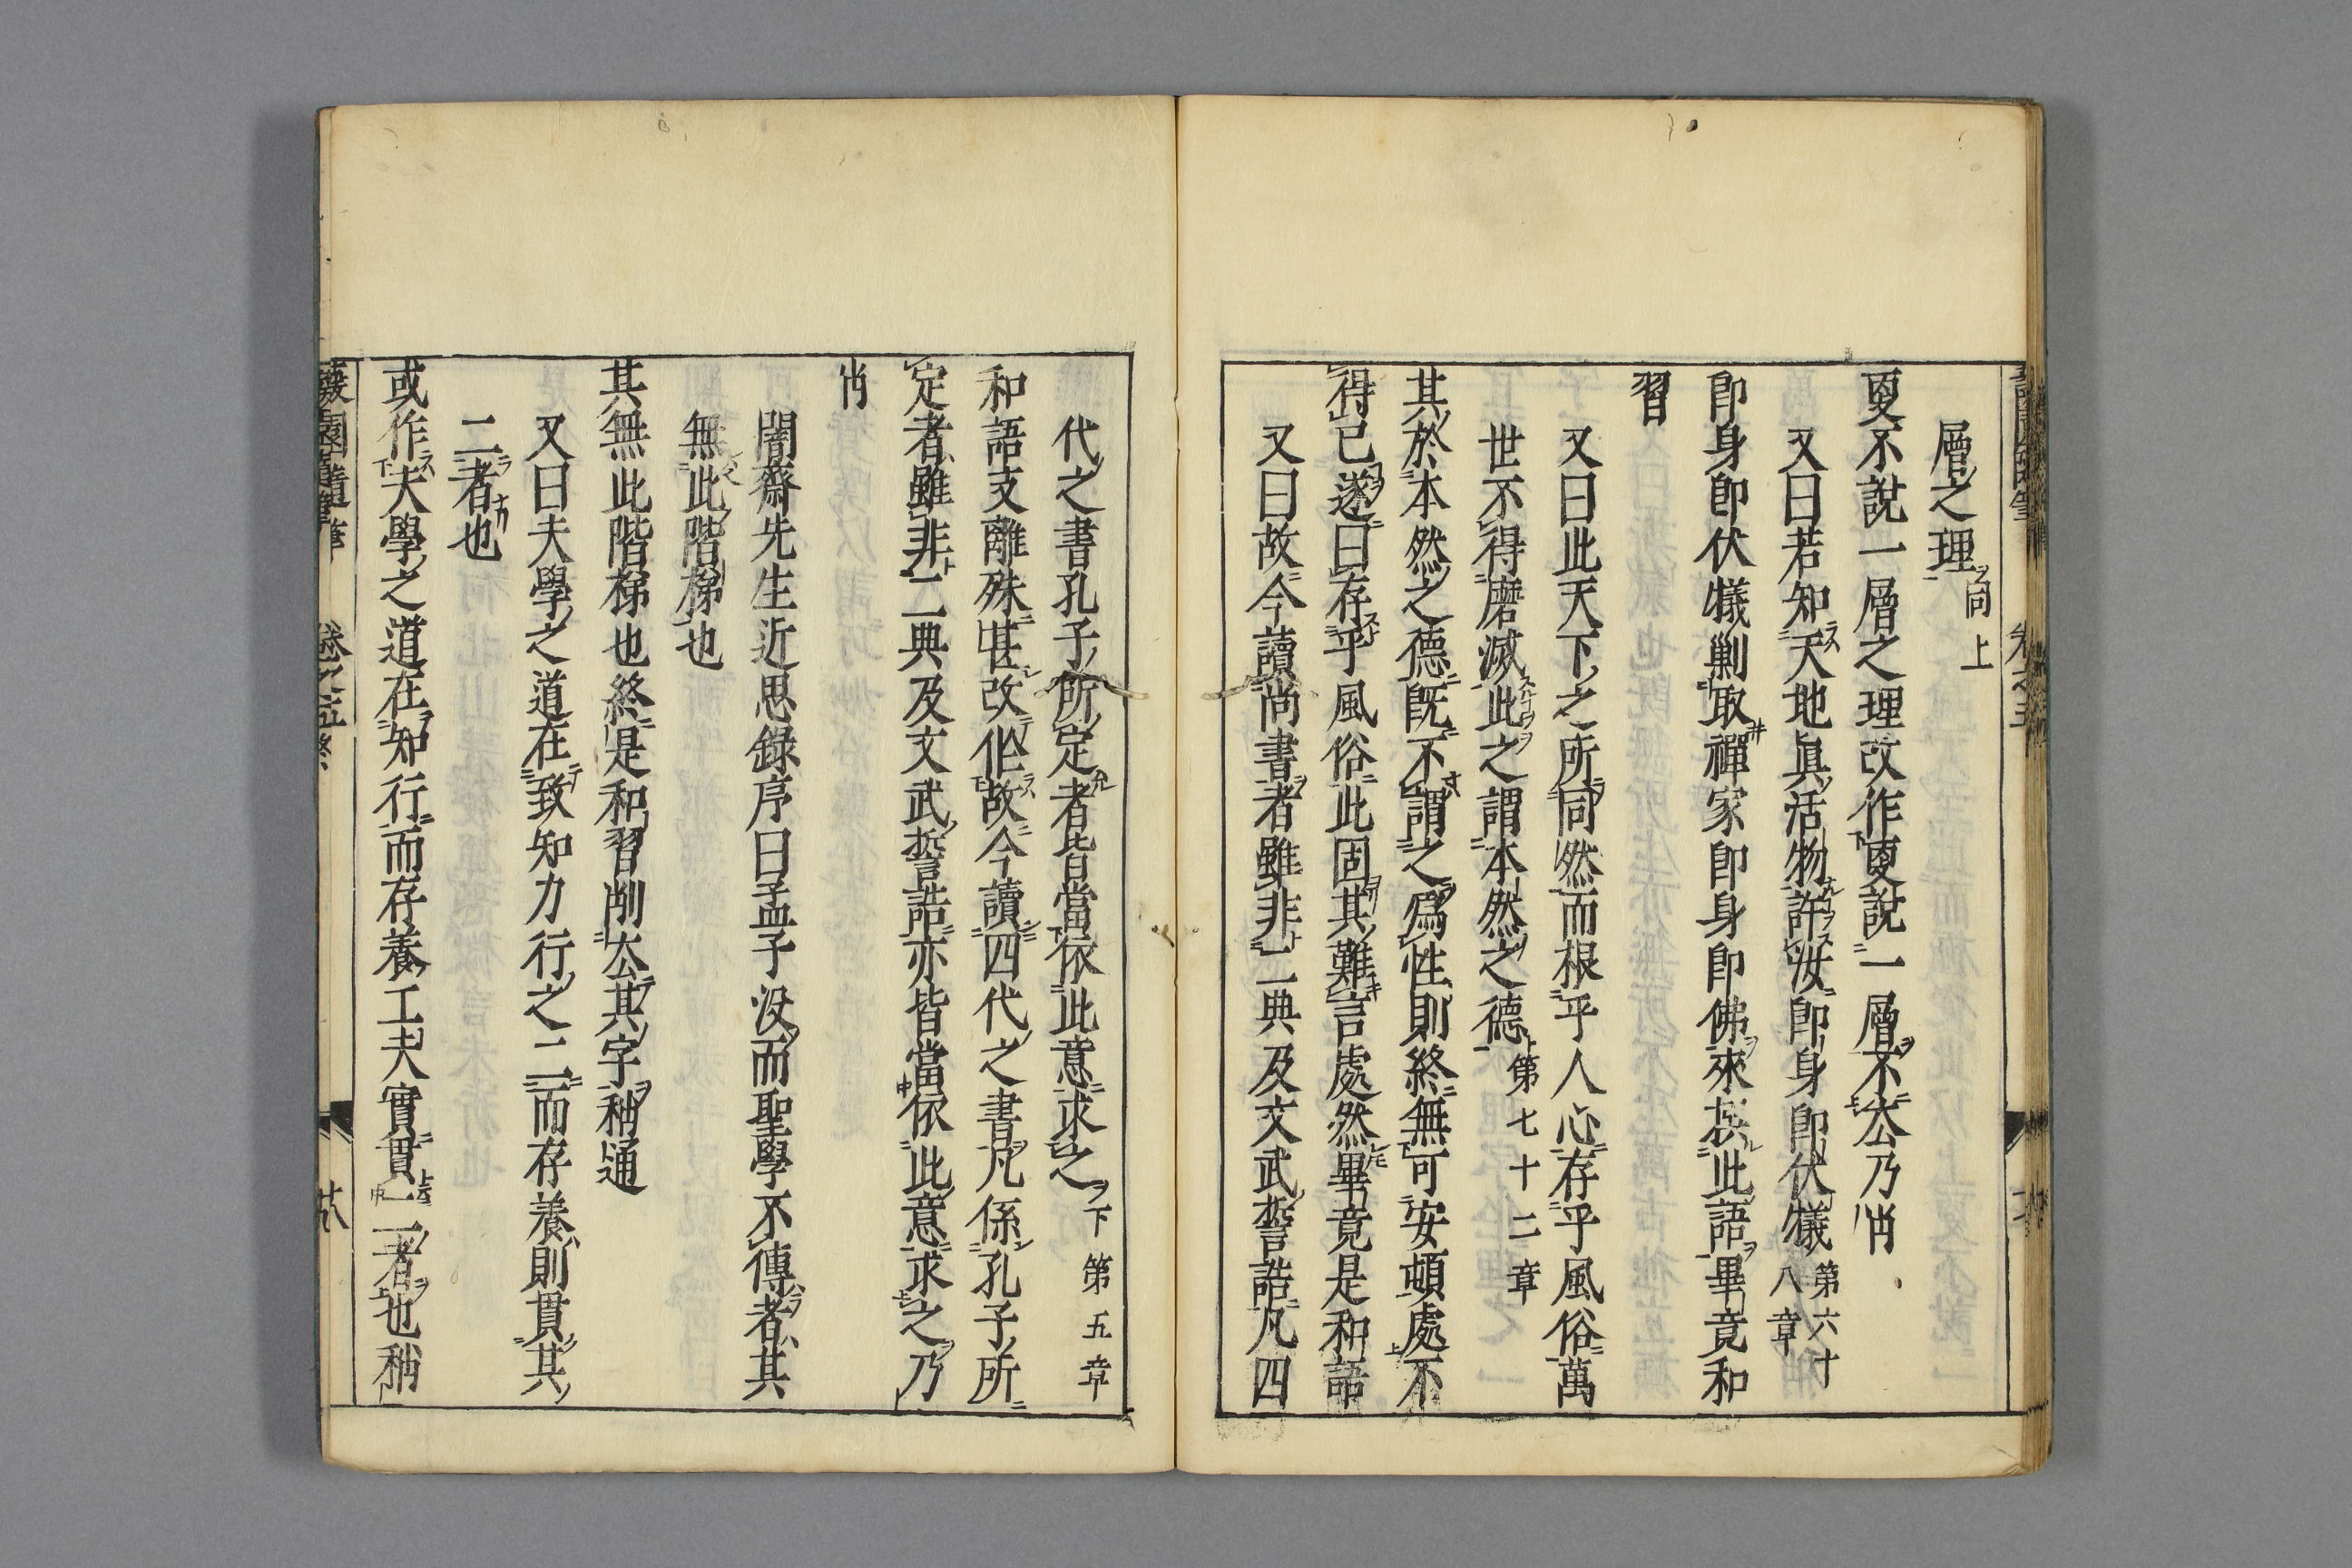 層之理同上
更不說一層之理改作更說一層不去乃肖
又曰若知天地眞活物許汝卽身卽伏犧第六十八章
卽身卽伏犧剿取禪家卽身卽佛來裝此語畢竟和
習
又曰此天下之所同然而根乎人心存乎風俗萬
世不得磨滅此之謂本然之德第七十二章
其於本然之德旣不謂之爲性則終無可安頓處不
得已遂曰存乎風俗此固其難言處然畢竟是和語
又曰故今讀尚書者雖非二典及文武誓誥凡四
代之書孔子所定者皆當依此意求之下第五章
和語支離殊甚改作故今讀四代之書凡係孔子所
定者雖非二典及文武誓誥亦皆當依此意求之乃
肖
闇齋先生近思録序曰孟子沒而聖學不傳者其
無此階梯也
其無此階梯也終是和習削去其字稍通
又曰夫學之道在致知力行之二而存養則貫其
二者也
或作夫學之道在知行而存養工夫實貫二者也稍
蘐園隨筆 卷之五終 廿八